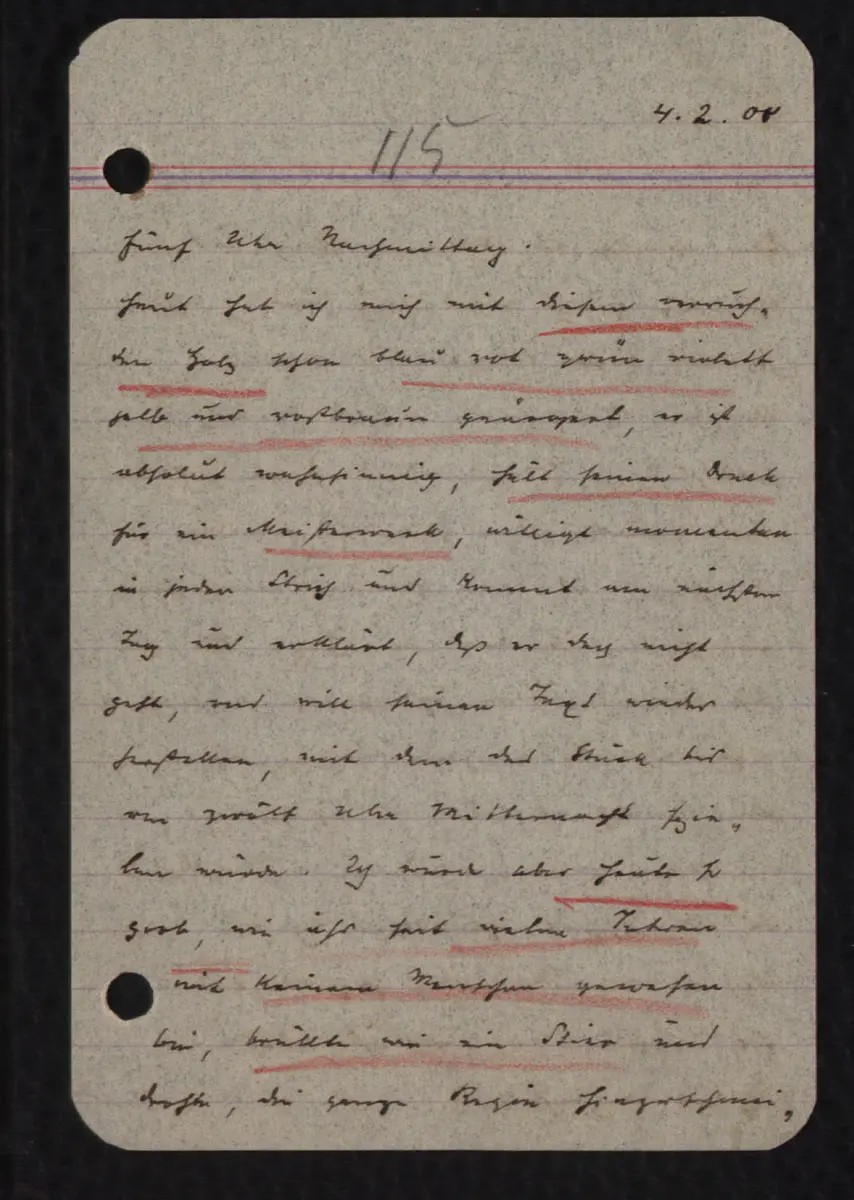 4. 2. 08
115
Fünf Uhr Nachmittag.
Heut hab ich mich mit diesem verrück-
ten Holz schon blau rot grün violett
gelb und rostbraun geärgert, er ist
absolut wahnsinnig, hält seinen Dreck
für ein Meisterwerk, willigt momentan
in jeden Strich und kommt am nächsten
Tag und erklärt, daß er das nicht
geht, und will seinen Text wieder
herstellen, mit dem das Stück bis
um zwölf Uhr Mitternacht spie-
len würde. Ich wurde aber heute so
grob, wie ichs seit vielen Jahren
mit keinem Menschen gewesen
bin, brüllte wie ein Stier und
drohte, die ganze Regie hinzuschmei-